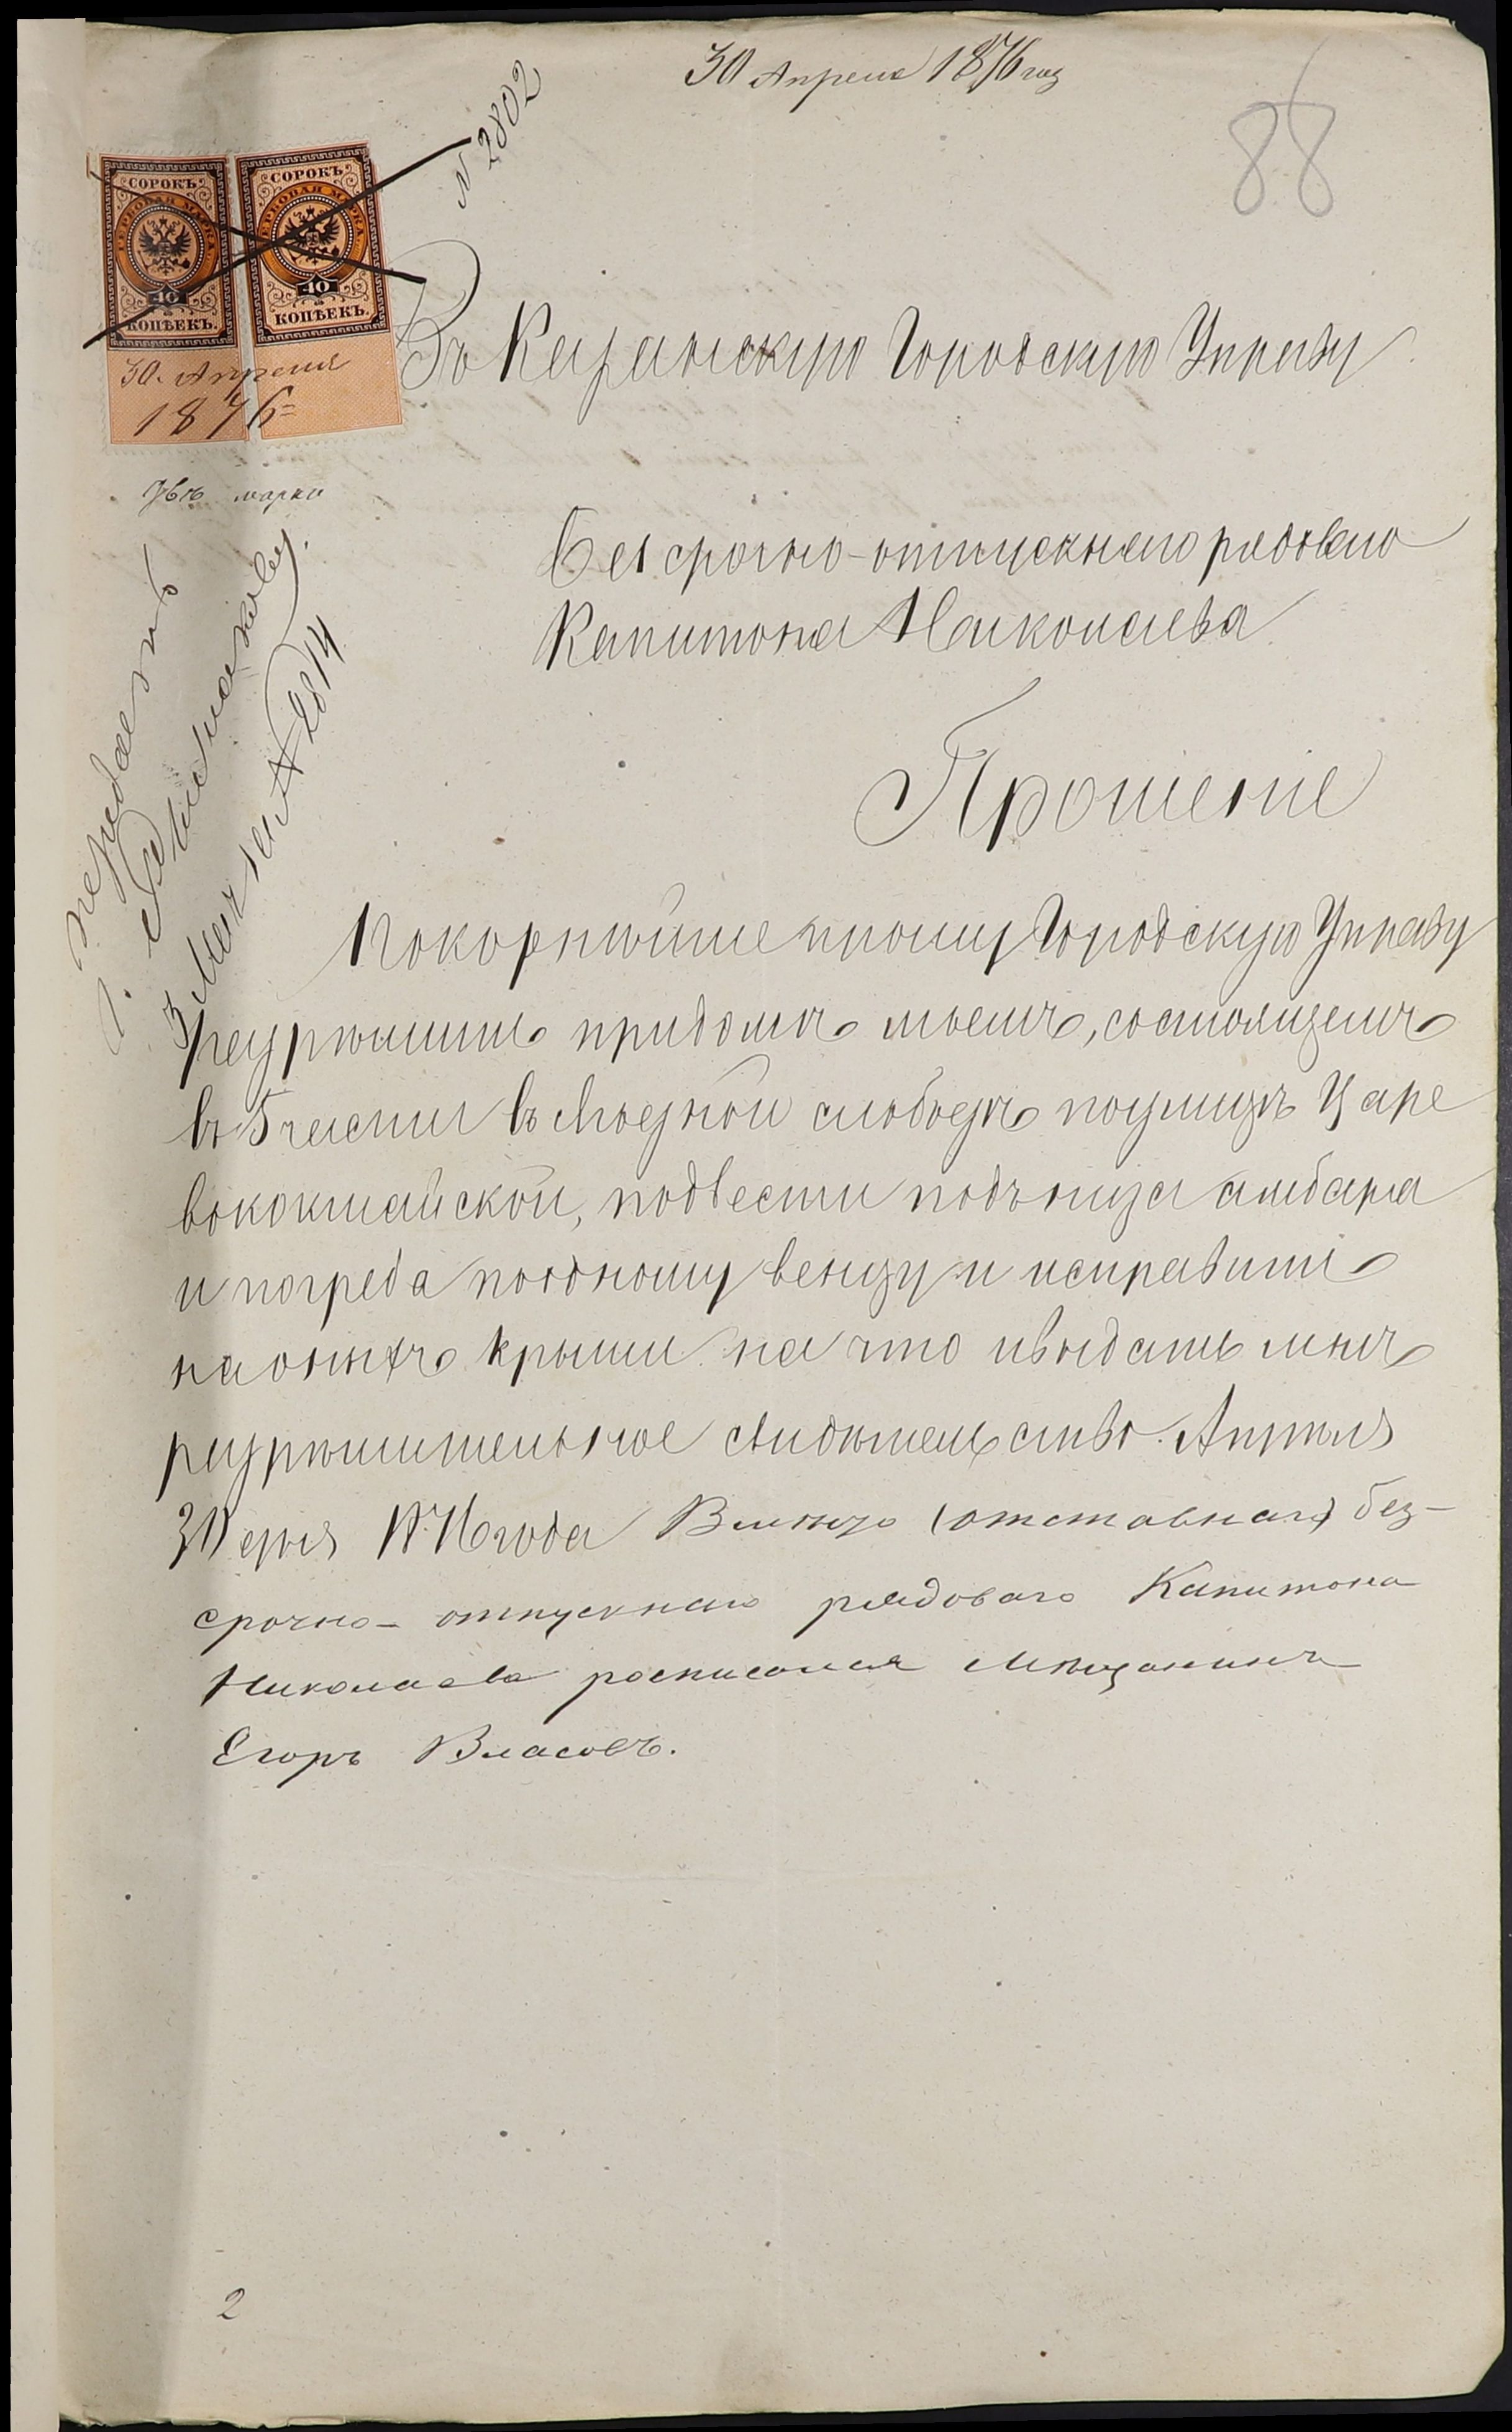 30 Апреля 1876 год
88
N 2802
СОРОКЪ
ГЕРБОВАЯ МАРКА
40
КОПѢЕКЪ.
СОРОКЪ
ГЕРБОВАЯ МАРКА
40
КОПѢЕКЪ.
30. Апреля
1876
двѣ марки
Въ Казанскую Городскую Управу
Безсрочно-отпускнаго рядоваго
Капитона Николаева
Прошеніе
передать
3 Мая N 2814
Покорнѣйше прошу Городскую Управу
разрѣшить придомѣ моемъ, состоящемъ
въ 5 части въ Ягодной слободѣ поулицѣ Царе
вококшайской, подвести подъ низа амбара
и погреба поодному венцу и исправить
наоныхъ крыши на что ивыдать мнѣ
разрѣшительное свидѣтельство. Апрѣля
30 дня 1876 года Вмѣсто (отставнаго) без-
срочно-отпускнаго рядоваго Капитона
Николаева росписался Мѣщанинъ
Егоръ Власовъ.
2